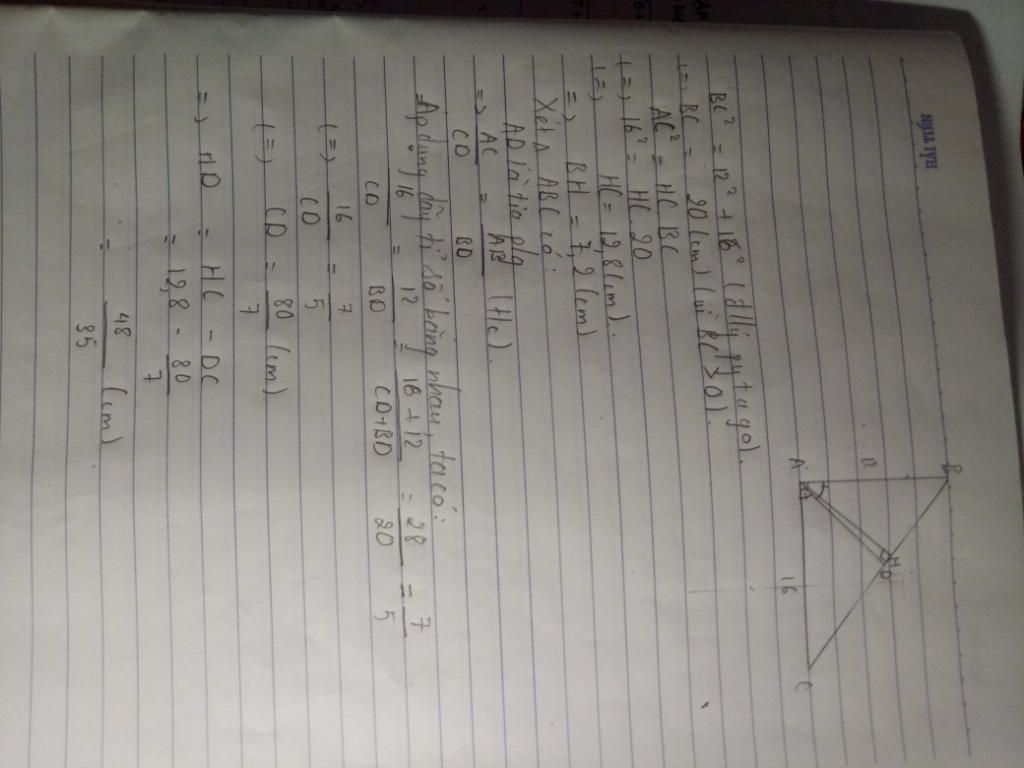 B
12
H
D
A
16
C
BC² = 12² + 16² (đ/lý pytago).
(=) BC = 20 (cm) (vì BC > 0).
AC² = HC.BC
(=) 16² = HC.20
(=) HC = 12,8 (cm).
=) BH = 7,2 (cm)
Xét Δ ABC có:
AD là tia p/g
=) AC/CD = AB/BD (t/c).
Áp dụng dãy tỉ số bằng nhau, ta có:
16/CD = 12/BD = 16 + 12/CD+BD = 28/20 = 7/5
(=) 16/CD = 7/5
(=) CD = 80/7 (cm)
=) HD = HC - DC
= 12,8 - 80/7
= 48/35 (cm)